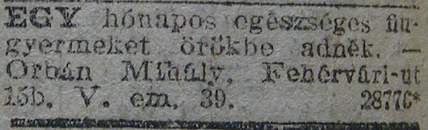 EGY hónapos egészséges fiu-
gyermeket örökbe adnék. —
Orbán Mihály, Fehérvári-ut
15b. V. em. 39. 28776*